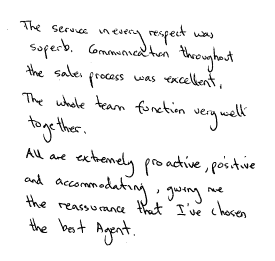 The service in every respect was
superb. Communication throughout
the sales process was excellent.
The whole team function very well
together.
All are extremely proactive, positive
and accommodating, giving me
the reassurance that I've chosen
the best Agent.